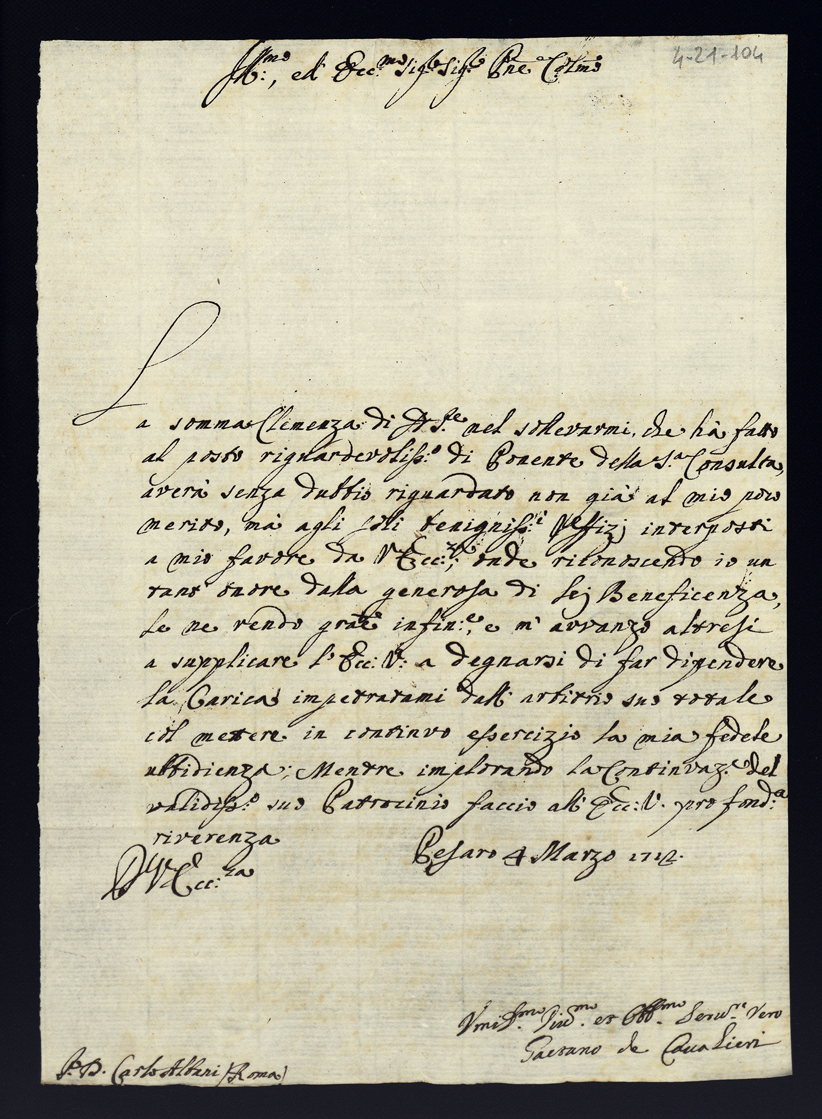 4-21-104
Ill:mo, ed Ecc:mo Sig:re Sig:re Pne Colmo
La somma Clemenza di N. S.re nel sollevarmi, che hà fatto
al posto riguardevoliss:o di Ponente della S.a Consulta,
averà senza dubbio riguardato non già al mio poco
merito, mà agli soli benigniss:i Uffizj interposti
a mio favore da V Ecc:za; onde riconoscendo io un
tant' onore dalla generosa di Lej Beneficenza,
le ne rendo grãe infin:e, e m' avvanzo altresi
a supplicare l' Ecc: V: a degnarsi di far dipendere
la Carica impetratami dall' arbitrio suo totale
col mettere in continuo essercizio la mia fedele
ubbidienza; Mentre implorando la Continuaz.e del
validiss:o suo Patrocinio faccio all' Ecc: V. profond:a
riverenza
Pesaro 4 Marzo 1712.
D V Ecc:za
Umil.mo Div.mo et Obb.mo Serv.re Vero
Gaetano de Cavalieri
P. D. Carlo Albani (Roma)